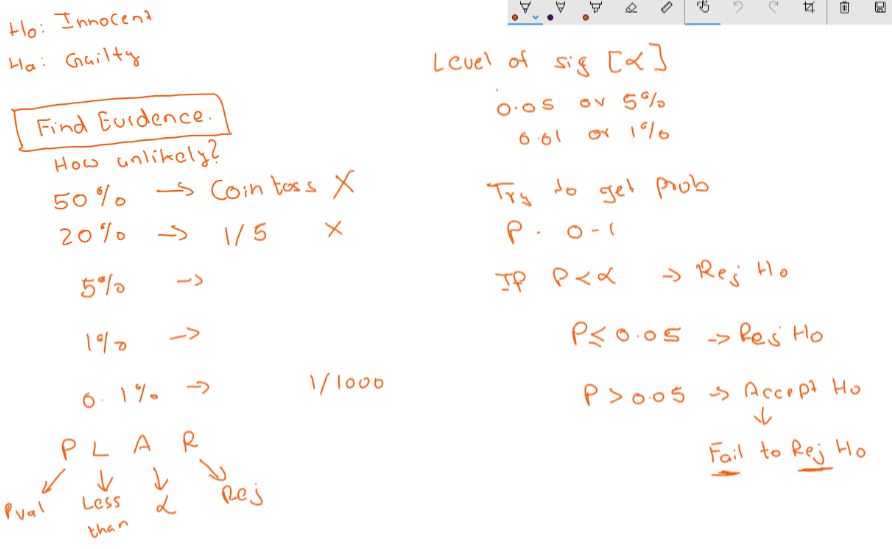 Ho: Innocent
Ha: Guilty
Find Evidence.
How unlikely?
50% → Coin toss X
20% → 1/5 X
5% →
1% →
0.1% → 1/1000
P L A R
Pval Less than α Rej
Level of sig [α]
0.05 or 5%
0.01 or 1%
Try to get prob
P. 0-1
If P<α → Rej Ho
P≤0.05 → Rej Ho
P>0.05 → Accept Ho
↓
Fail to Rej Ho